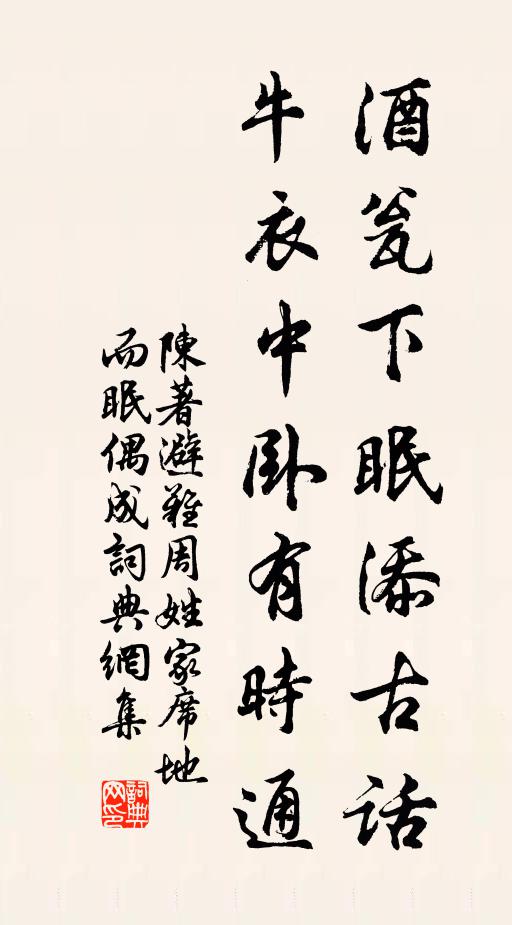 酒瓮下眠添古话
牛衣中卧有時通
陳著避難周姓家席地
而眠偶成詞典網集
詞典网印